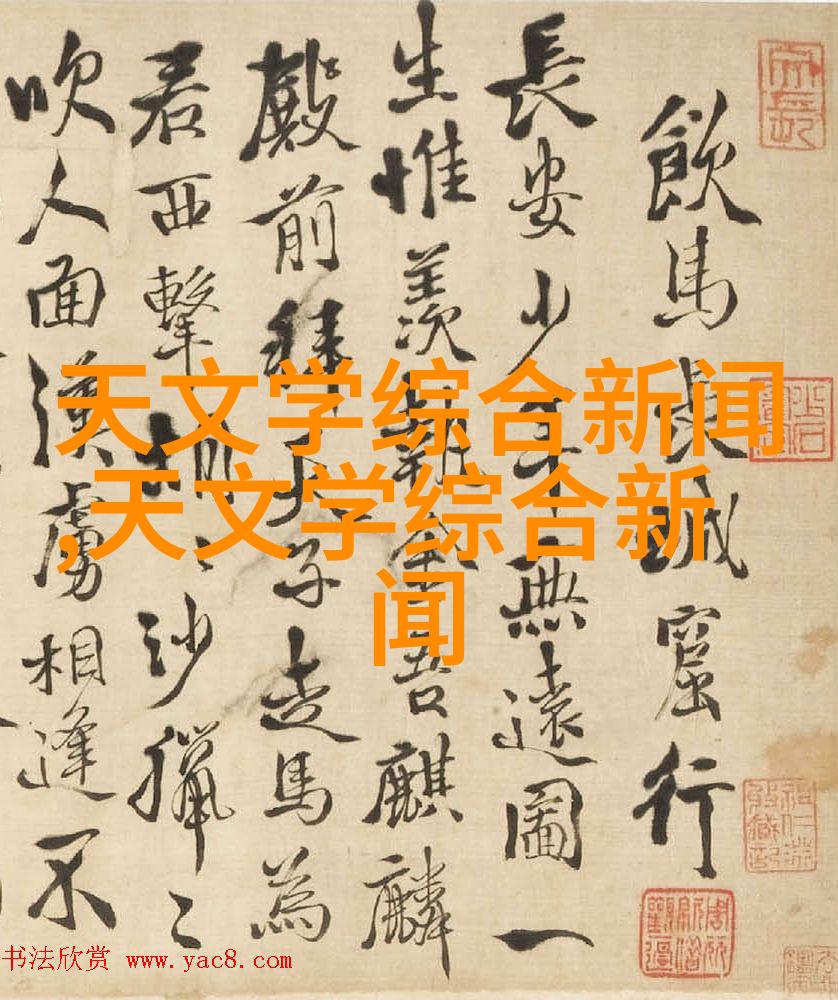 飲馬長城窟行
長安少年無遠圖一
生惟羨執金吾麒麟
殿前拜天子走馬為
君西擊胡〻沙獵〻
吹人面漢虜相逢不
天文学综合新闻
,天文学综合新
闻
书法欣赏 www.yac8.com